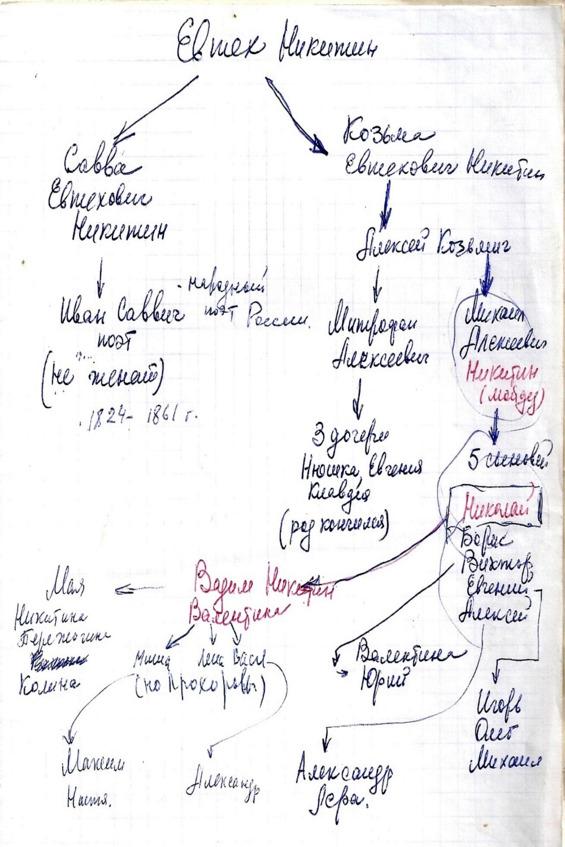 Евтех Никитин
Савва
Евтехович
Никитин
Козьма
Евтехович Никитин
Алексей Козьмич
Иван Саввич
поэт
(не женат)
1824 - 1861 г.
- народный
поэт России.
Митрофан
Алексеевич
3 дочери
Нюшка, Евгения
Клавдия
(род кончился)
Михаил
Алексеевич
Никитин
5 сыновей
Николай
Борис
Виктор
Евгений
Алексей
Вадим Никитин
Валентина
Мая
Никитина
Колина
Миша Лена Вася
(но Прохоровы)
Максим
Настя.
Александр
Валентина
Юрий
Александр
Лёва.
Игорь
Олег
Михаил